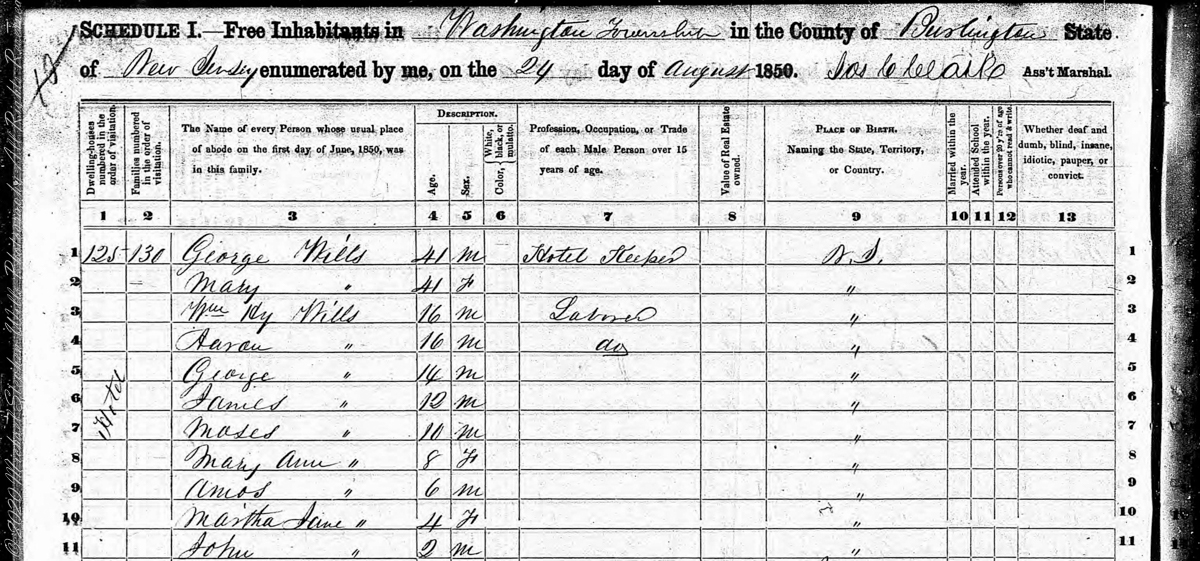 SCHEDULE I.—Free Inhabitants in Washington Township in the County of Burlington State
of New Jersey enumerated by me, on the 24 day of August 1850. Jos C Clark Ass't Marshal.
Dwelling-houses numbered in the order of visitation.
Families numbered in the order of visitation.
The Name of every Person whose usual place of abode on the first day of June, 1850, was in this family.
DESCRIPTION.
Age.
Sex.
Color, { White, black, or mulatto.
Profession, Occupation, or Trade of each Male Person over 15 years of age.
Value of Real Estate owned.
PLACE OF BIRTH. Naming the State, Territory, or Country.
Married within the year.
Attended School within the year.
Persons over 20 y'rs of age who cannot read & write.
Whether deaf and dumb, blind, insane, idiotic, pauper, or convict.
1 2 3 4 5 6 7 8 9 10 11 12 13
1 125 130 George Wills 41 m Hotel Keeper N.J. 1
2 Mary " 41 F " 2
3 Wm Hy Wills 16 m Laborer " 3
4 Aaron " 16 m do " 4
5 George " 14 m " 5
6 James " 12 m " 6
7 Moses " 10 m " 7
8 Mary Ann " 8 F " 8
9 Amos " 6 m " 9
10 Martha Jane " 4 F " 10
11 John " 2 m " 11
Hotel